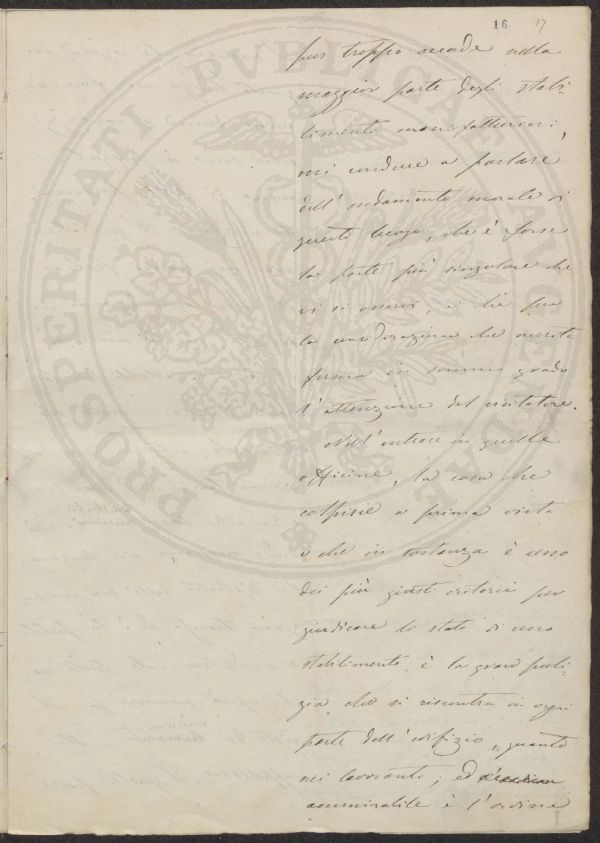 16 17
pur troppo accade nella
maggior parte degli stabi-
limenti manifatturieri,
mi conduce a parlare
dell'andamento morale di
questo luogo, che è forse
la parte più singolare che
vi si osservi, e che per
la considerazione che merita
ferma in sommo grado
l'attenzione del visitatore.
Nell'entrare in quelle
officine, la cosa che
colpisce a prima vista
e che in sostanza è uno
dei più giusti criterii per
giudicare lo stato di uno
stabilimento, è la gran puli-
zia che si riscontra in ogni
parte dell'edifizio, quanto
nei lavoranti; ed
ammirabile è l'ordine
PROSPERITATI PUBLICAE AUGENDAE